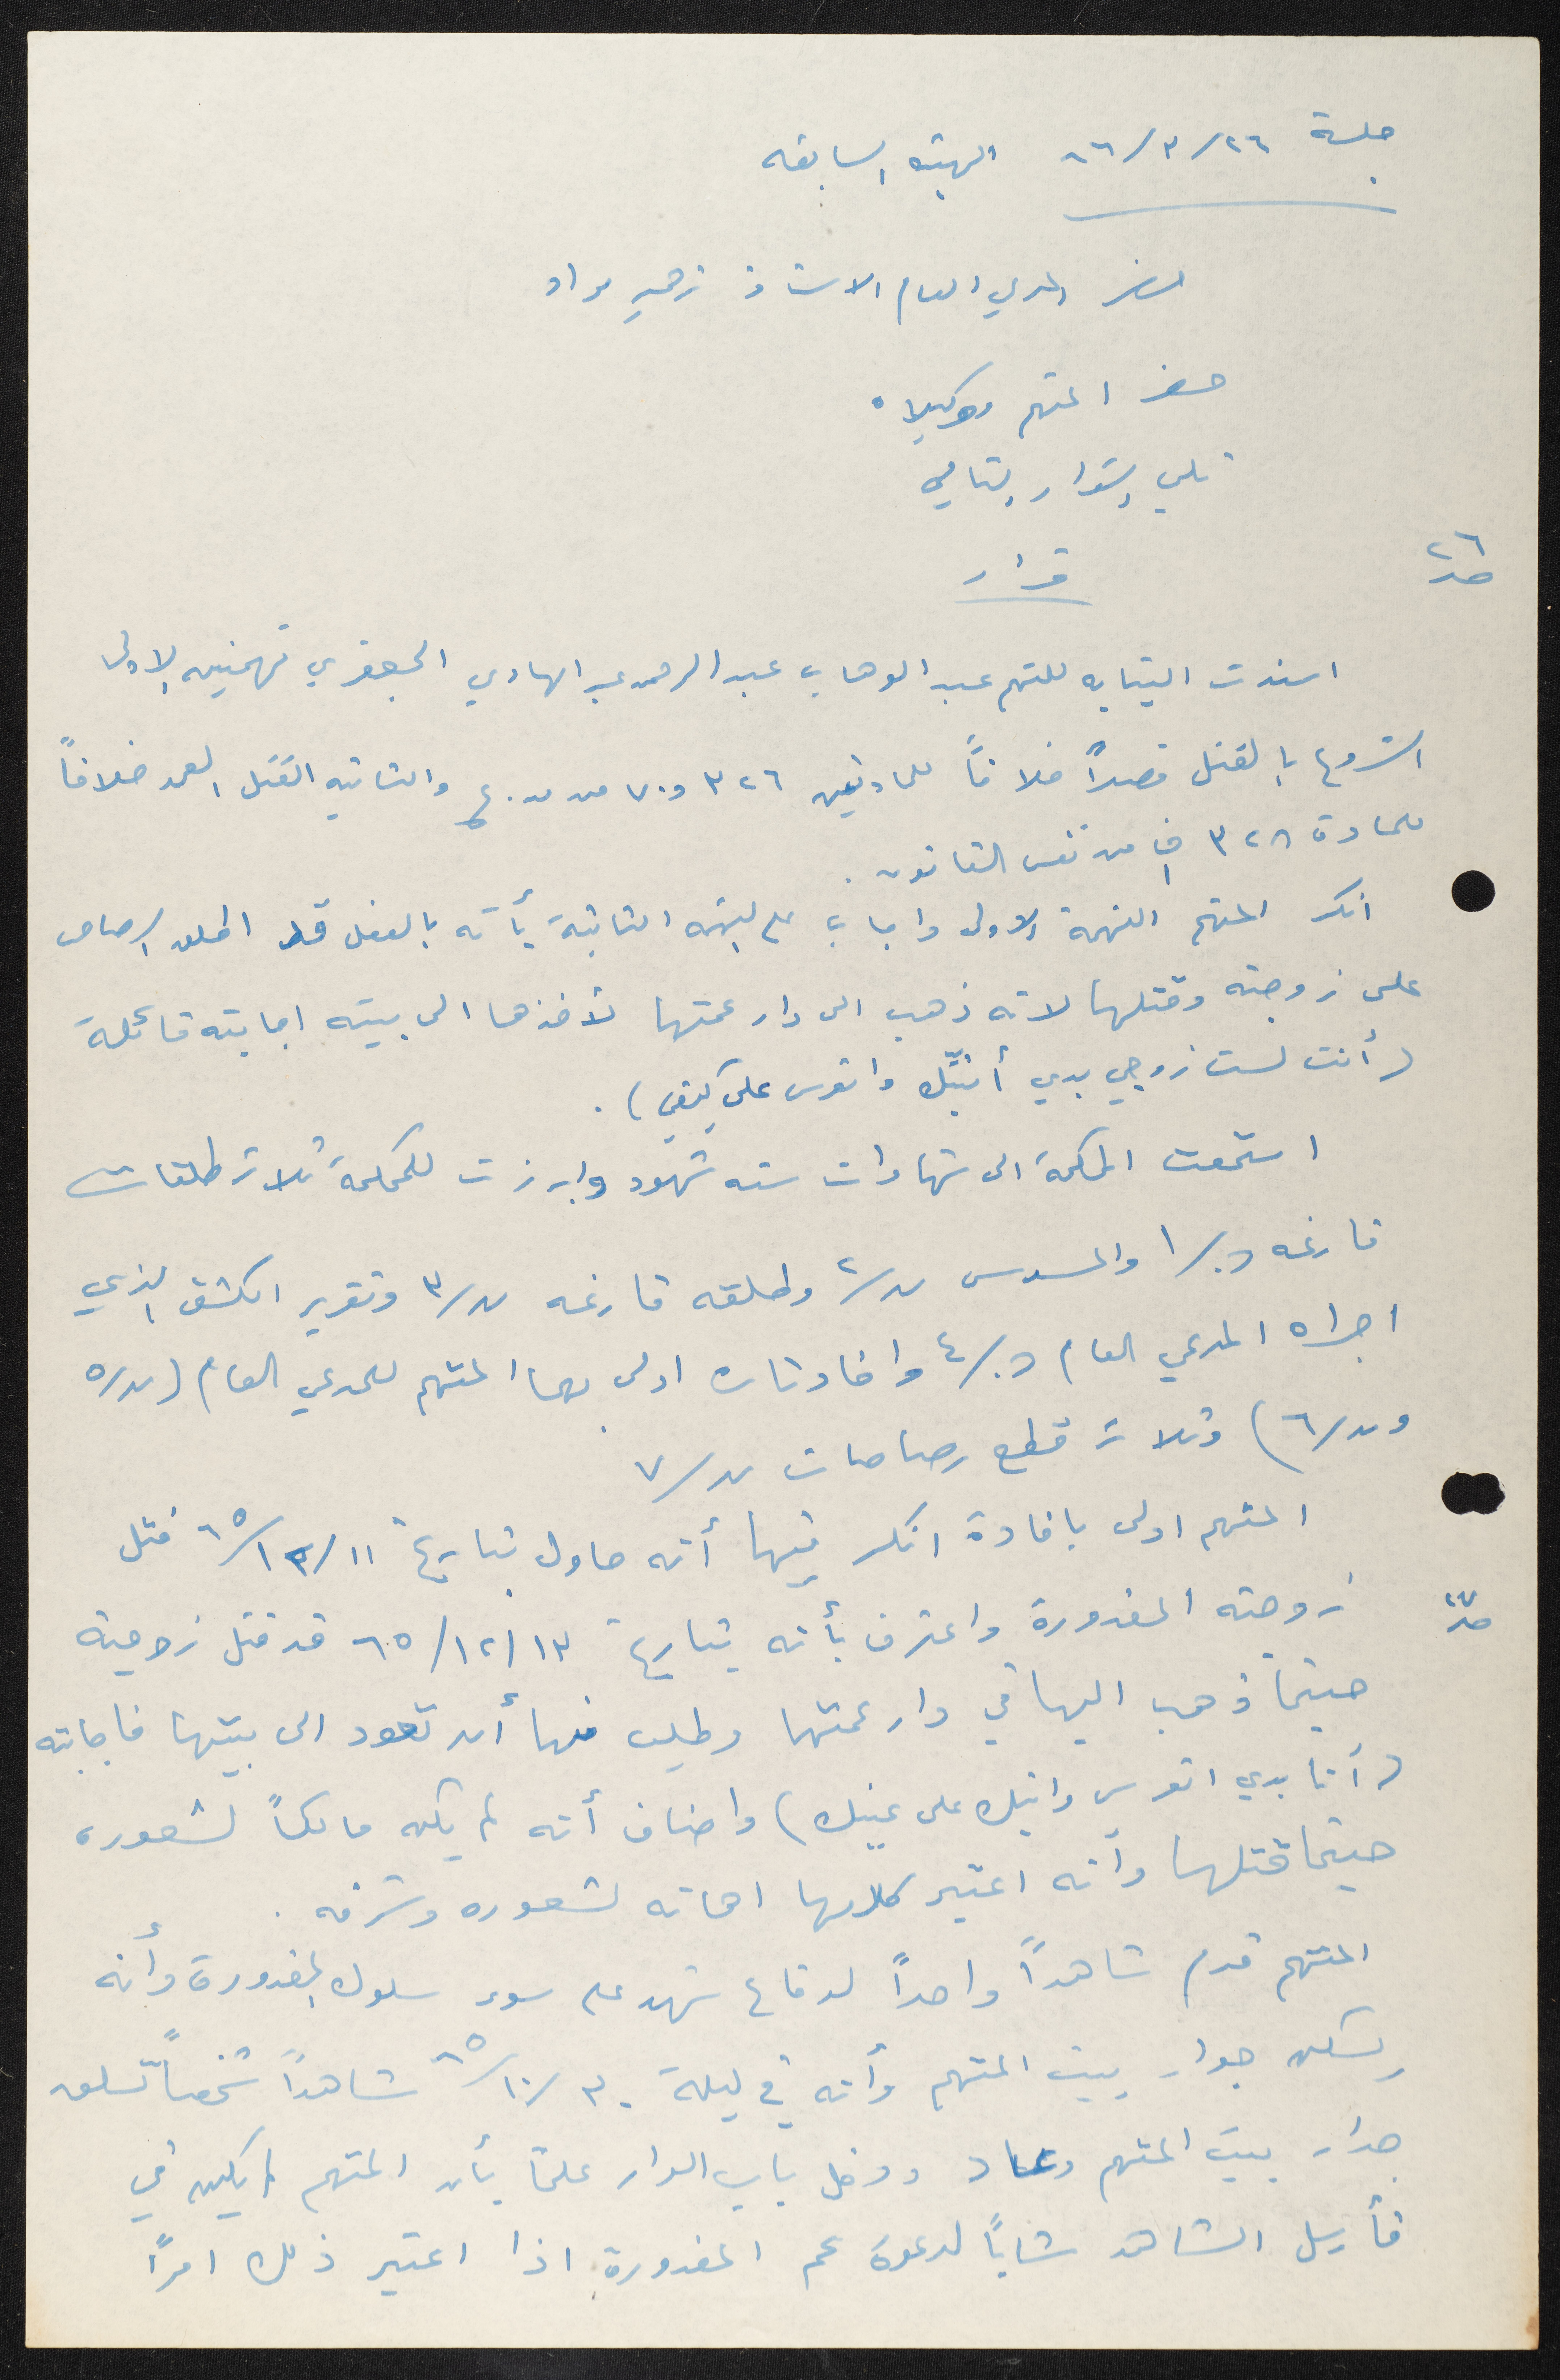 جلسة ٢٦/٣/٦٦ الهيئه السابقه
حضر المدعي العام الاستاذ زهير مراد
حضر المتهم ووكيلاه
تلي القرار التالي
صـ ٢٦
قرار
اسندت النيابه للمتهم عبد الوهاب عبد الرحمن عبد الهادي الجعفري تهمتين الاولى
الشروع بالقتل قصداً خلافاً للمادتين ٣٢٦ و ٧٠ من ق.ع والثانيه القتل العمد خلافاً
للمادة ٣٢٨ ف١ من نفس القانون.
انكر المتهم التهمة الاولى واجاب على التهمه الثانية بأنه بالفعل قد اطلق الرصاص
على زوجته وقتلها لانه ذهب الى دار عمتها لأخذها الى بيته اجابته قائلة
(أنت لست زوجي بدي أنيّك واتعرس على كيفي).
استمعت المحكمة الى شهادات سته شهود وابرزت للمحكمة ثلاث طلقات
فارغه ن/١ والمسدس ن/٢ وطلقه فارغه ن/٣ وتقرير الكشف الذي
اجراه المدعي العام ن/٤ وافادتان ادلى بهما المتهم للمدعي العام (ن/٥
ون/٦) وثلاث قطع رصاصات ن/٧
المتهم ادلى بافادة انكر فيها أنه حاول بتاريخ ١١/١٢/٦٥ قتل
صـ ٢٧
زوجته المغدورة واعترف بأنه بتاريخ ١٣/١٢/٦٥ قد قتل زوجته
حينما ذهب اليها في دار عمتها وطلب منها أن تعود الى بيتها فاجابته
(أنا بدي اتعرس وانيك على عينك) واضاف أنه لم يكن مالكاً لشعوره
حينما قتلها وأنه اعتبر كلامها اهانه لشعوره وشرفه.
المتهم قدم شاهداً واحداً لدفاع شهد على سوء سلوك المغدورة وأنه
يسكن جوار بيت المتهم وأنه في ليلة ٣٠/١٠/٦٥ شاهداً شخصاً تسلق
جدار بيت المتهم وعاد ودخل باب الدار علماً بأن المتهم لم يكن في
فأرسل الشاهد شاباً لدعوة عم المغدورة اذا اعتبر ذلك امراً